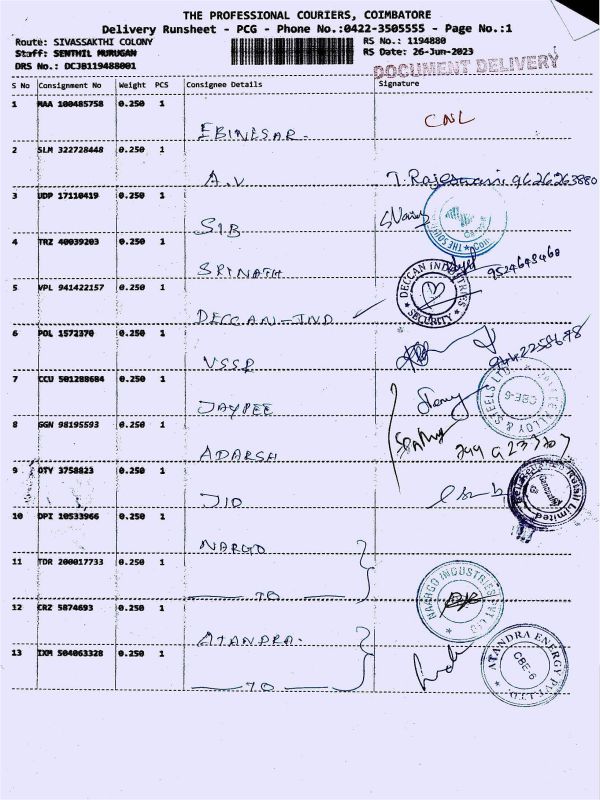 THE PROFESSIONAL COURIERS, COIMBATORE
Delivery Runsheet - PCG - Phone No.:0422-3505555 - Page No.:1
Route: SIVASSAKTHI COLONY RS No.: 1194880
Staff: SENTHIL MURUGAN RS Date: 26-Jun-2023
DRS No.: DCJB119488001
DOCUMENT DELIVERY
S No Consignment No Weight PCS Consignee Details Signature
1 MAA 100485758 0.250 1
EBINESAR. CNL
2 SLM 322728448 0.250 1
A.V T. Rajeswari 9626263880
3 UDP 17110419 0.250 1
SIB
4 TRZ 40039203 0.250 1
SRINATH 9524648468
5 VPL 941422157 0.250 1
DECCAN INDUSTRIES
SECURITY
DECCAN-IND
6 POL 1572370 0.250 1
VSSR
7 CCU 501288684 0.250 1
JAYPEE
ALLOY & STEELS
CBE-6
8 GGN 98195593 0.250 1
ADARSH
9 OTY 3758823 0.250 1
JIO
Retail Limited
10 DPI 10533966 0.250 1
NARGO
11 TDR 200017733 0.250 1
TO
NAARGO INDUSTRIES PVT LTD
12 CRZ 5874693 0.250 1
ATANDRA.
13 IXM 504063328 0.250 1
TO
ATANDRA ENERGY PVT. LTD.
CBE-6